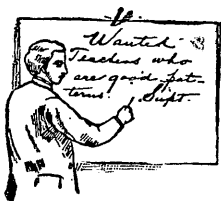 Wanted
Teachers who
are good pat-
terns. Supt.